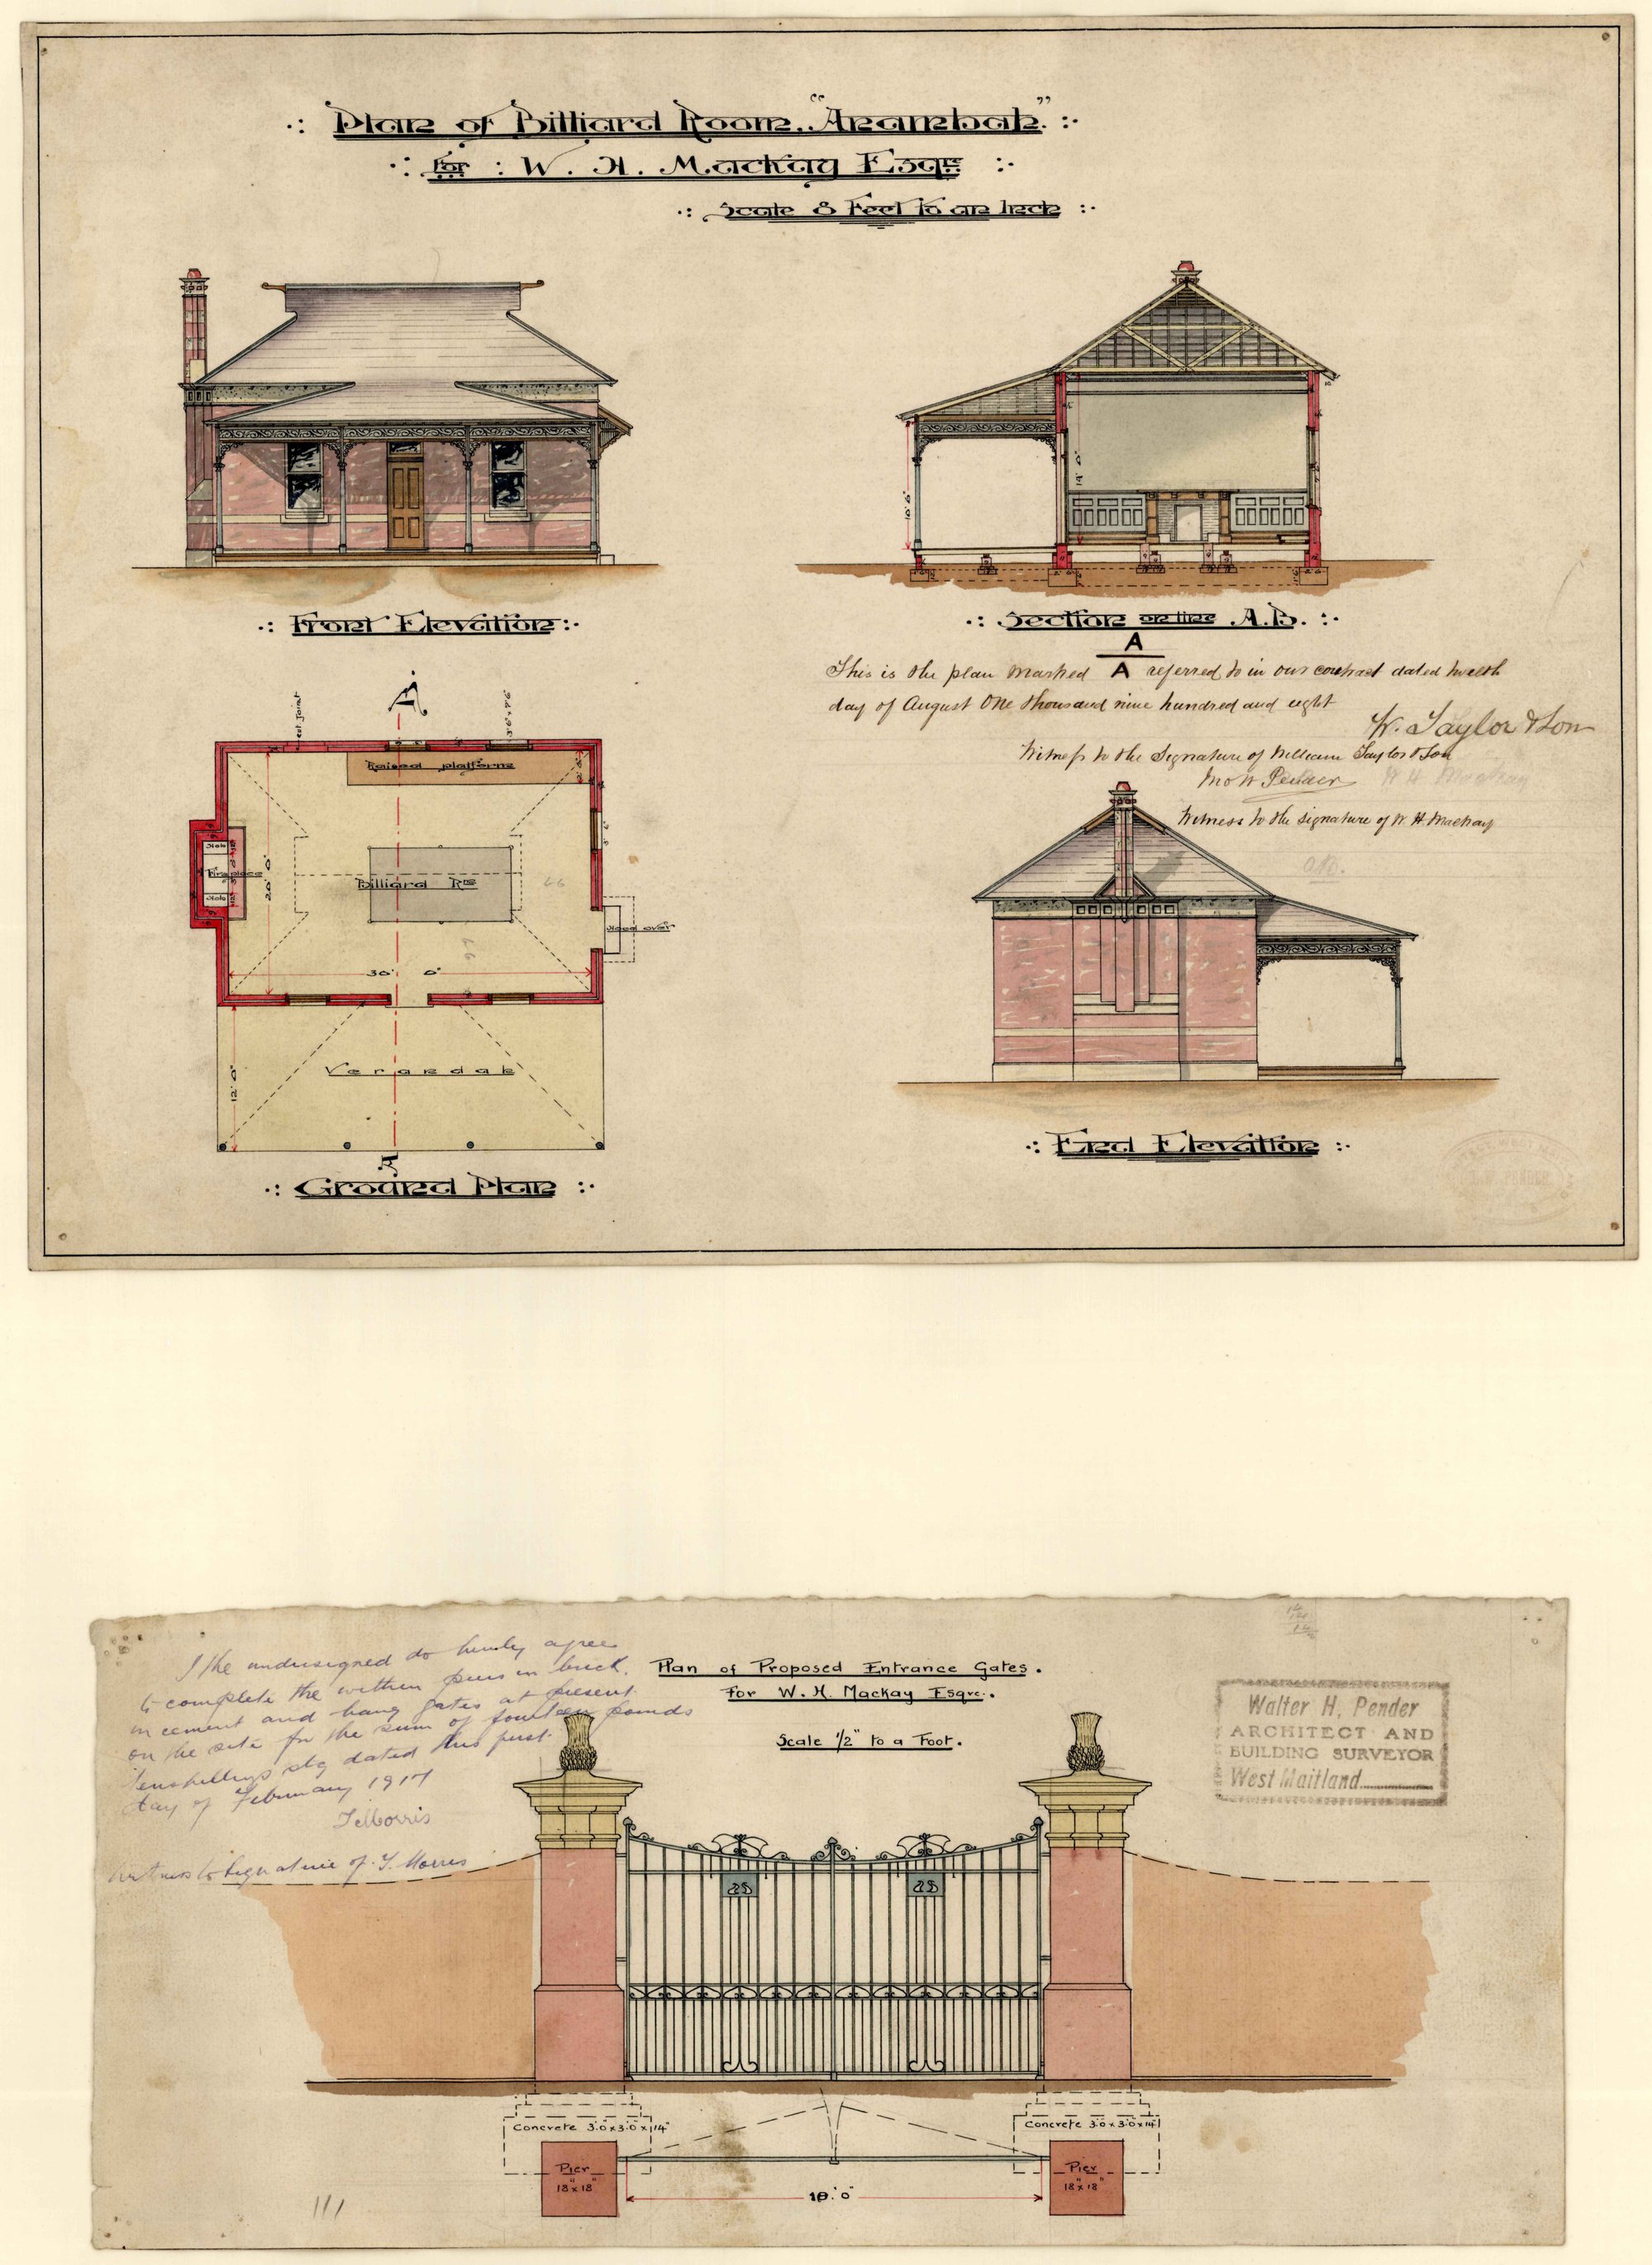 Plan of Billiard Room, "Anambah".
for : W. H. Mackay Esqre
Scale 8 Feet to an Inch
Front Elevation
10'.6"
14'.0"
Section on line A.B.
This is the plan marked A/A referred to in our contract dated twelfth
day of August One thousand nine hundred and eight
W. Taylor & Son
Witness to the Signature of William Taylor & Son
Jno W Pender W H Mackay
Witness to the signature of W. H. Mackay
A
Raised platform
Hob
Fireplace
Hob
20'.0"
Billiard Rm
66
Hood over
30'. 0"
Verandah
12'.0"
Ground Plan
End Elevation
PENDER
I the undersigned do hereby agree
to complete the within piers in brick
in cement and hang gates at present
on the site for the sum of fourteen pounds
Tenshillings stg dated this first
day of February 1917
T Morris
Witness to Signature of T. Morris
Plan of Proposed Entrance Gates.
For W. H. Mackay Esqre.
Scale 1/2" to a Foot.
Walter H. Pender
ARCHITECT AND
BUILDING SURVEYOR
West Maitland
Concrete 3'.0"x3'.0"x14"
Concrete 3'.0"x3'.0"x14"
Pier
18"x18"
Pier
18"x18"
10'.0"
111